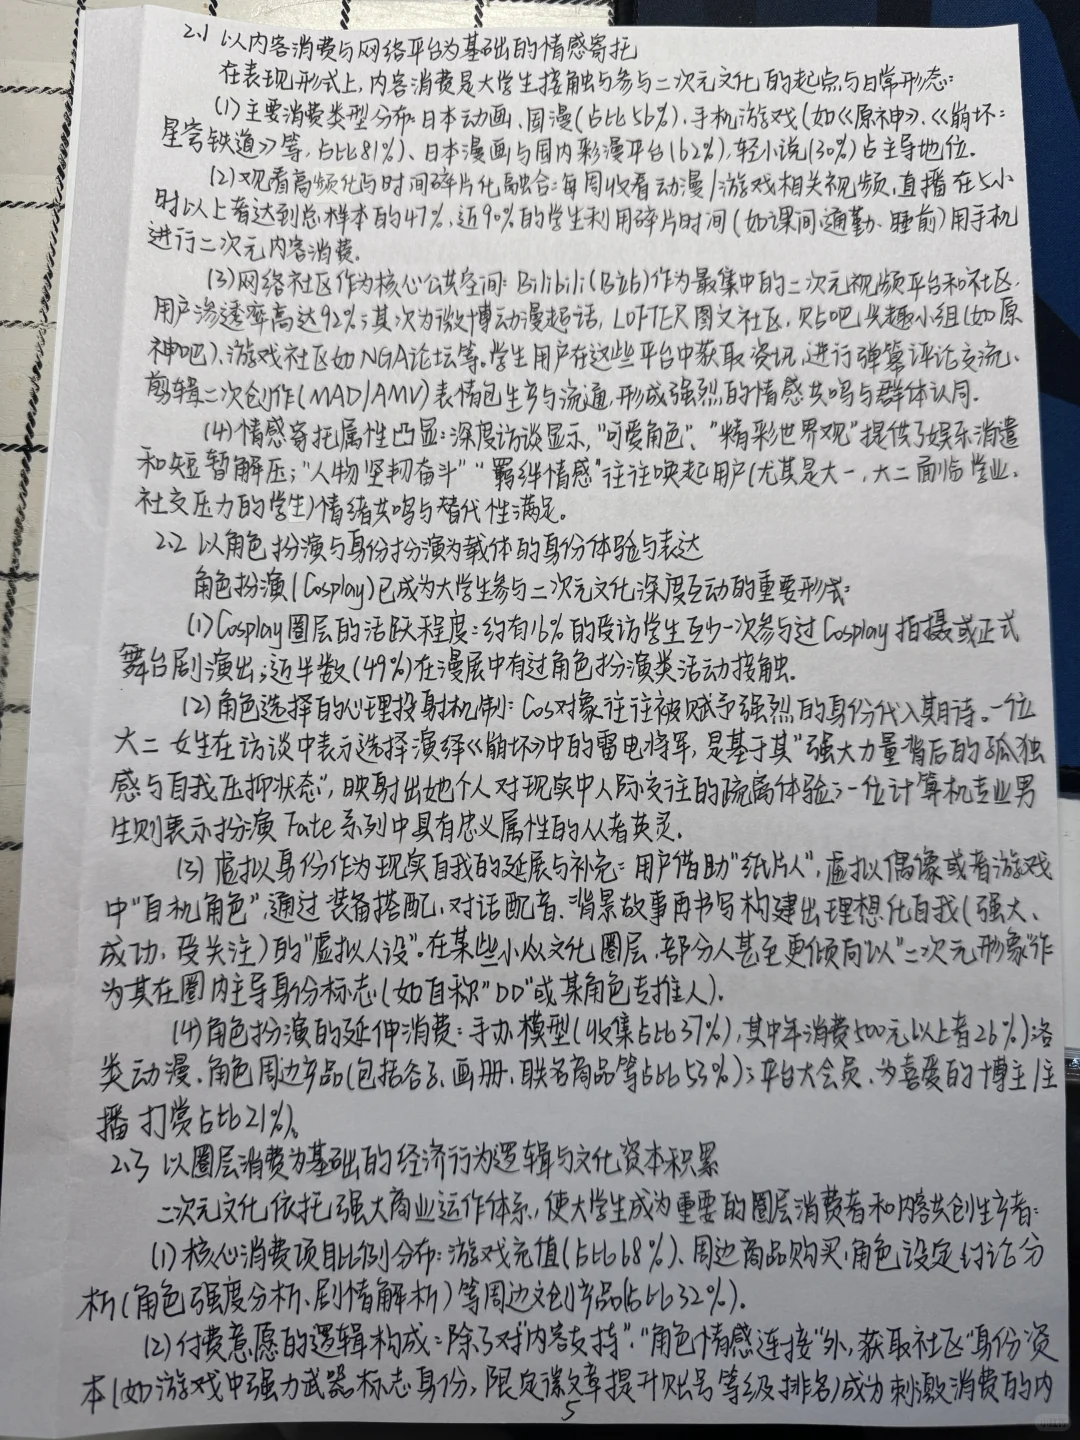 2.1 以内容消费与网络平台为基础的情感寄托
在表现形式上,内容消费是大学生接触与参与二次元文化的起点与日常形态:
(1)主要消费类型分布:日本动画、国漫(占比56%)、手机游戏(如《原神》、《崩坏:
星穹铁道》等,占比81%)、日本漫画与国内彩漫平台(62%),轻小说(30%)占主导地位.
(2)观看高频化与时间碎片化融合:每周收看动漫/游戏相关视频、直播在5小
时以上者达到总样本的47%,近90%的学生利用碎片时间(如课间、通勤、睡前)用手机
进行二次元内容消费.
(3)网络社区作为核心公共空间:Bilibili(B站)作为最集中的二次元视频平台和社区,
用户渗透率高达92%;其次为微博动漫超话,LOFTER图文社区,贴吧兴趣小组(如原
神吧)、游戏社区如NGA论坛等。学生用户在这些平台中获取资讯、进行弹幕评论交流、
剪辑二次创作(MAD/AMV)表情包生产与流通,形成强烈的情感共鸣与群体认同.
(4)情感寄托属性凸显:深度访谈显示,"可爱角色"、"精彩世界观"提供了娱乐消遣
和短暂解压;"人物坚韧奋斗""羁绊情感"往往唤起用户(尤其是大一,大二面临学业、
社交压力的学生)情绪共鸣与替代性满足。
2.2 以角色扮演与身份扮演为载体的身份体验与表达
角色扮演(Cosplay)已成为大学生参与二次元文化深度互动的重要形式:
(1)Cosplay圈层的活跃程度:约有16%的受访学生至少一次参与过Cosplay拍摄或正式
舞台剧演出;近半数(49%)在漫展中有过角色扮演类活动接触.
(2)角色选择的心理投射机制:Cos对象往往被赋予强烈的身份代入期待。一位
大二女生在访谈中表示选择演绎《崩坏》中的雷电将军,是基于其"强大力量背后的孤独
感与自我压抑状态",映射出她个人对现实中人际交往的疏离体验;一位计算机专业男
生则表示扮演Fate系列中具有忠义属性的从者英灵.
(3)虚拟身份作为现实自我的延展与补充:用户借助"纸片人",虚拟偶像或者游戏
中"自机角色",通过装备搭配、对话配音、背景故事再书写构建出理想化自我(强大、
成功、受关注)的"虚拟人设"。在某些小众文化圈层,部分人甚至更倾向以"二次元形象"作
为其在圈内主导身份标志(如自称"DD"或某角色专推人).
(4)角色扮演的延伸消费:手办模型(收集占比37%),其中年消费500元以上者26%);各
类动漫、角色周边产品(包括谷子、画册、联名商品等占比53%);平台大会员、为喜爱的博主/主
播打赏占比21%)。
2.3 以圈层消费为基础的经济行为逻辑与文化资本积累
二次元文化依托强大商业运作体系,使大学生成为重要的圈层消费者和内容共创生产者:
(1)核心消费项目比例分布:游戏充值(占比68%)、周边商品购买、角色设定讨论分
析(角色强度分析、剧情解析)等周边文创产品(占比32%).
(2)付费意愿的逻辑构成:除了对"内容支持"."角色情感连接"外,获取社区"身份资
本(如游戏中强力武器标志身份,限定徽章提升账号等级排名)成为刺激消费的内
5